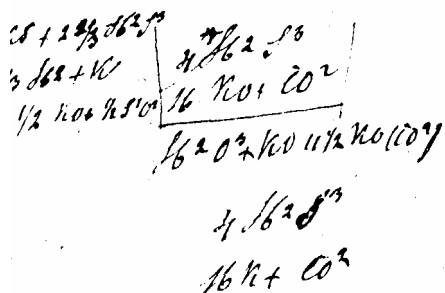 KS + 2 2/3 Sb2S3
/3 Sb2 + K
1/2 KO +
4 Sb2 S3
16 KO + CO2
Sb2O3 + KO 11 1/2 KO CO2
4 Sb2 S3
16 K + CO2